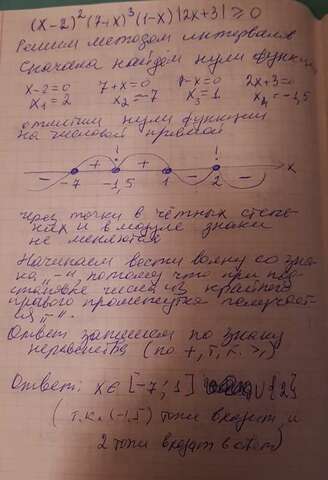 (x-2)²(7+x)³(1-x)|2x+3| ≥ 0
Решим методом интервалов
Сначала найдём нули функции
x-2=0 7+x=0 1-x=0 2x+3=0
x₁=2 x₂=-7 x₃=1 x₄=-1,5
отметим нули функции
на числовой прямой
- + ! + - ! - x
-7 -1,5 1 2
через точки в чётных степе-
нях и в модуле знаки
не меняются
Начинаем вести волну со зна-
ка "-" потому что при под-
становке числа из крайнего
правого промежутка получает-
ся "-".
Ответ запишем по знаку
неравенства (по +, т.к. ≥)
Ответ: x ∈ [-7; 1] ∪ {2}
(т.к. (-1,5) тоже входит и
2 тоже входит в ответ)